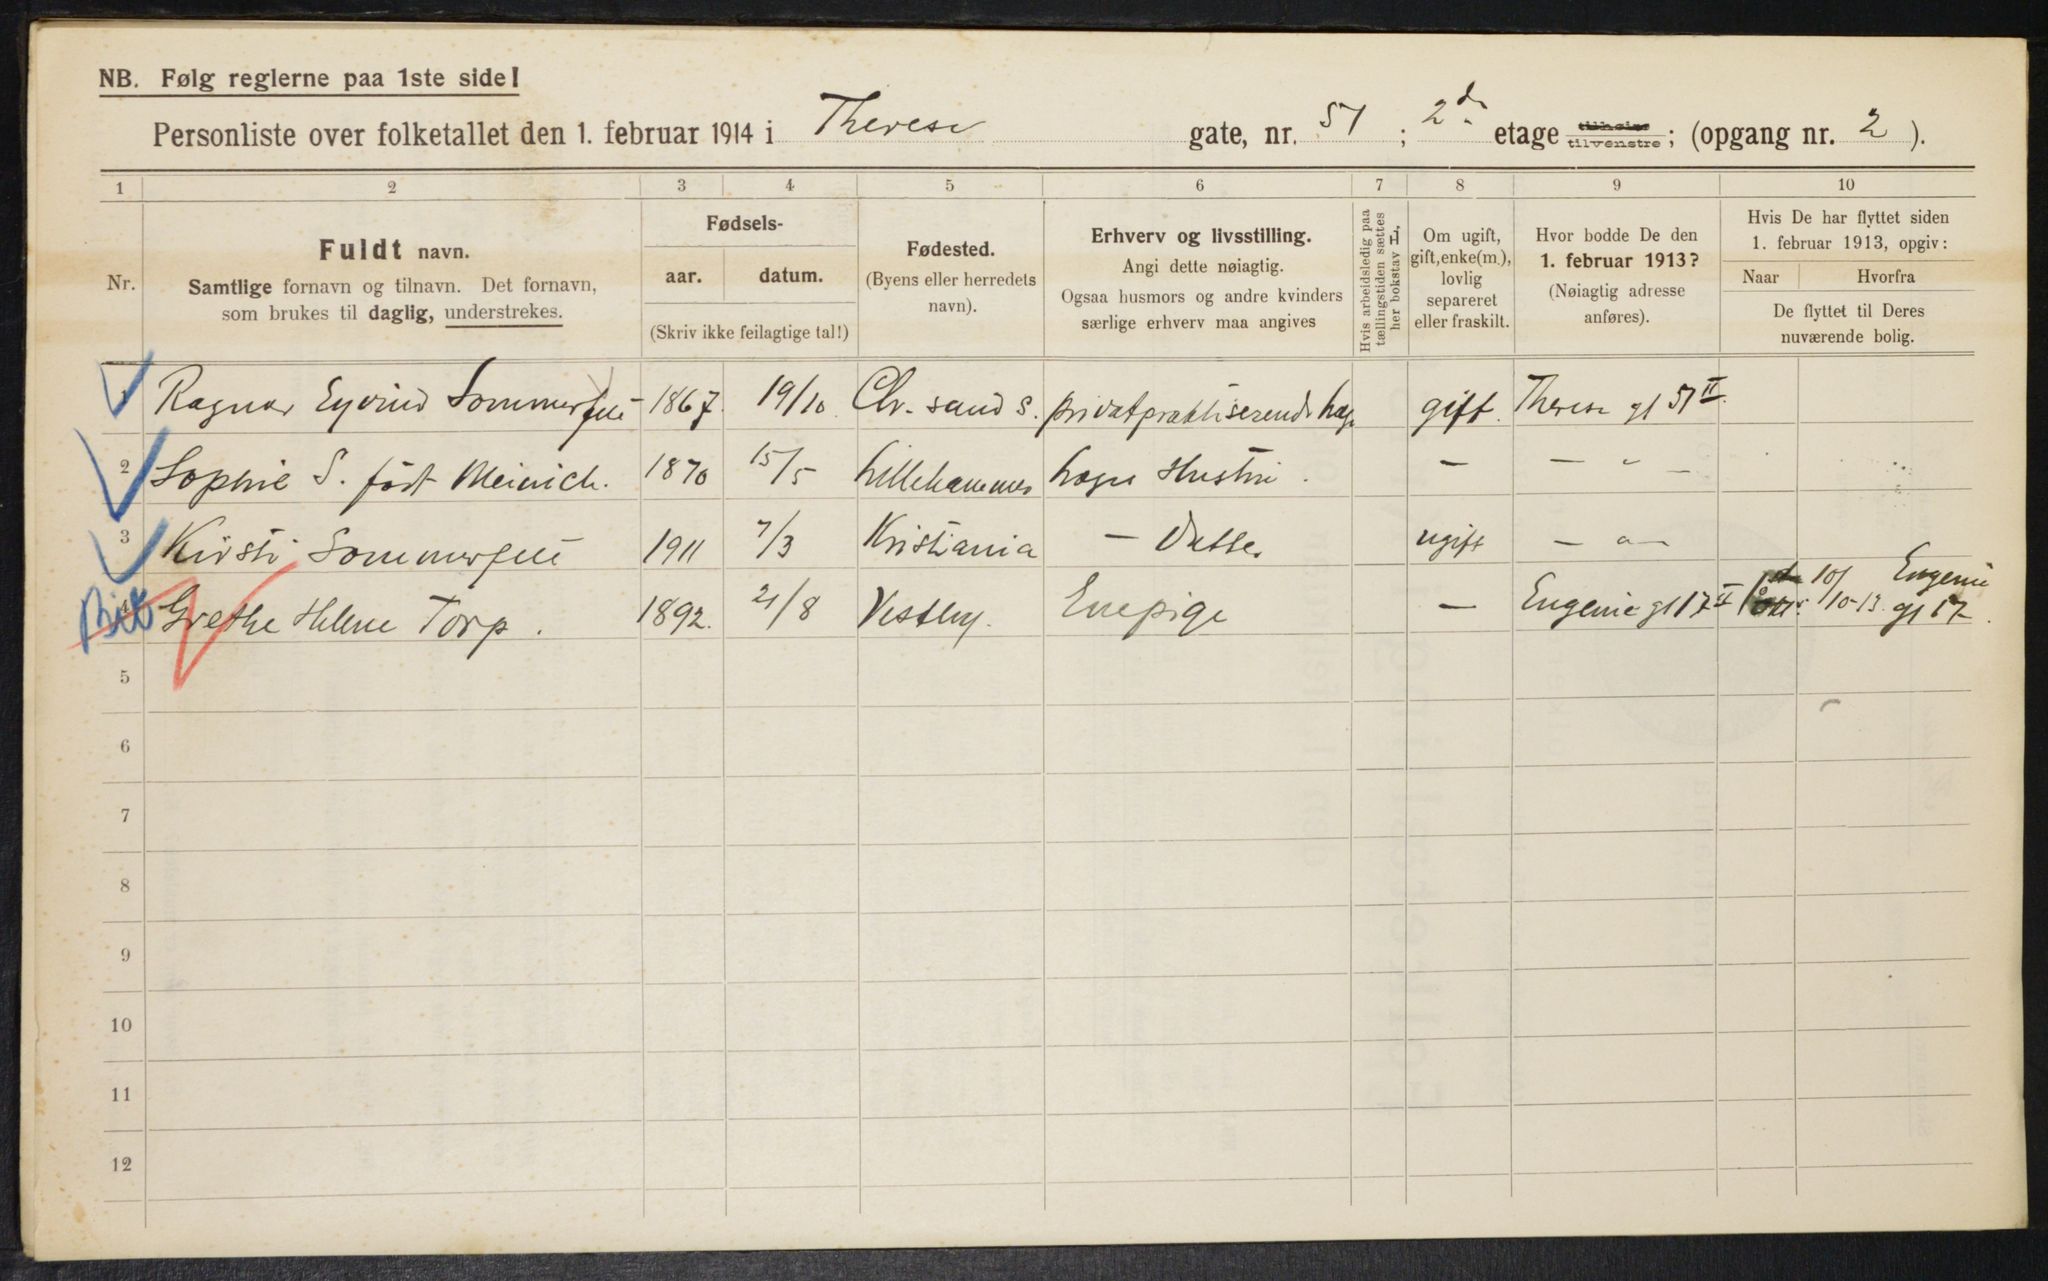 NB. Følg reglerne paa 1ste side!
Personliste over folketallet den 1. februar 1914 i Therese gate, nr. 51 ; 2den etage tilhøire tilvenstre ; (opgang nr. 2 ).
1 2 3 4 5 6 7 8 9 10
Nr.
Fuldt navn.
Samtlige fornavn og tilnavn. Det fornavn,
som brukes til daglig, understrekes.
Fødsels-
aar. datum.
(Skriv ikke feilagtige tal!)
Fødested.
(Byens eller herredets
navn).
Erhverv og livsstilling.
Angi dette nøiagtig.
Ogsaa husmors og andre kvinders
særlige erhverv maa angives
Hvis arbeidsledig paa
tællingstiden sættes
her bokstav L.
Om ugift,
gift, enke(m.),
lovlig
separeret
eller fraskilt.
Hvor bodde De den
1. februar 1913?
(Nøiagtig adresse
anføres).
Hvis De har flyttet siden
1. februar 1913, opgiv:
Naar Hvorfra
De flyttet til Deres
nuværende bolig.
1 Ragnar Eyvind Sommerfelt 1867. 19/10 Chr.sand S. privatpraktiserende læge gift. Therese gt 51 II.
2 Sophie S. født Meinich. 1870 15/5 Lillehammer Læges Hustru. — — " —
3 Kirsti Sommerfelt 1911 7/3 Kristiania — Datter ugift — " —
4 Grethe Helene Torp. 1892. 21/8 Vestby. Enepige — Eugenie gt 17 II 10/10-13. Eugenie gt 17.
5
6
7
8
9
10
11
12